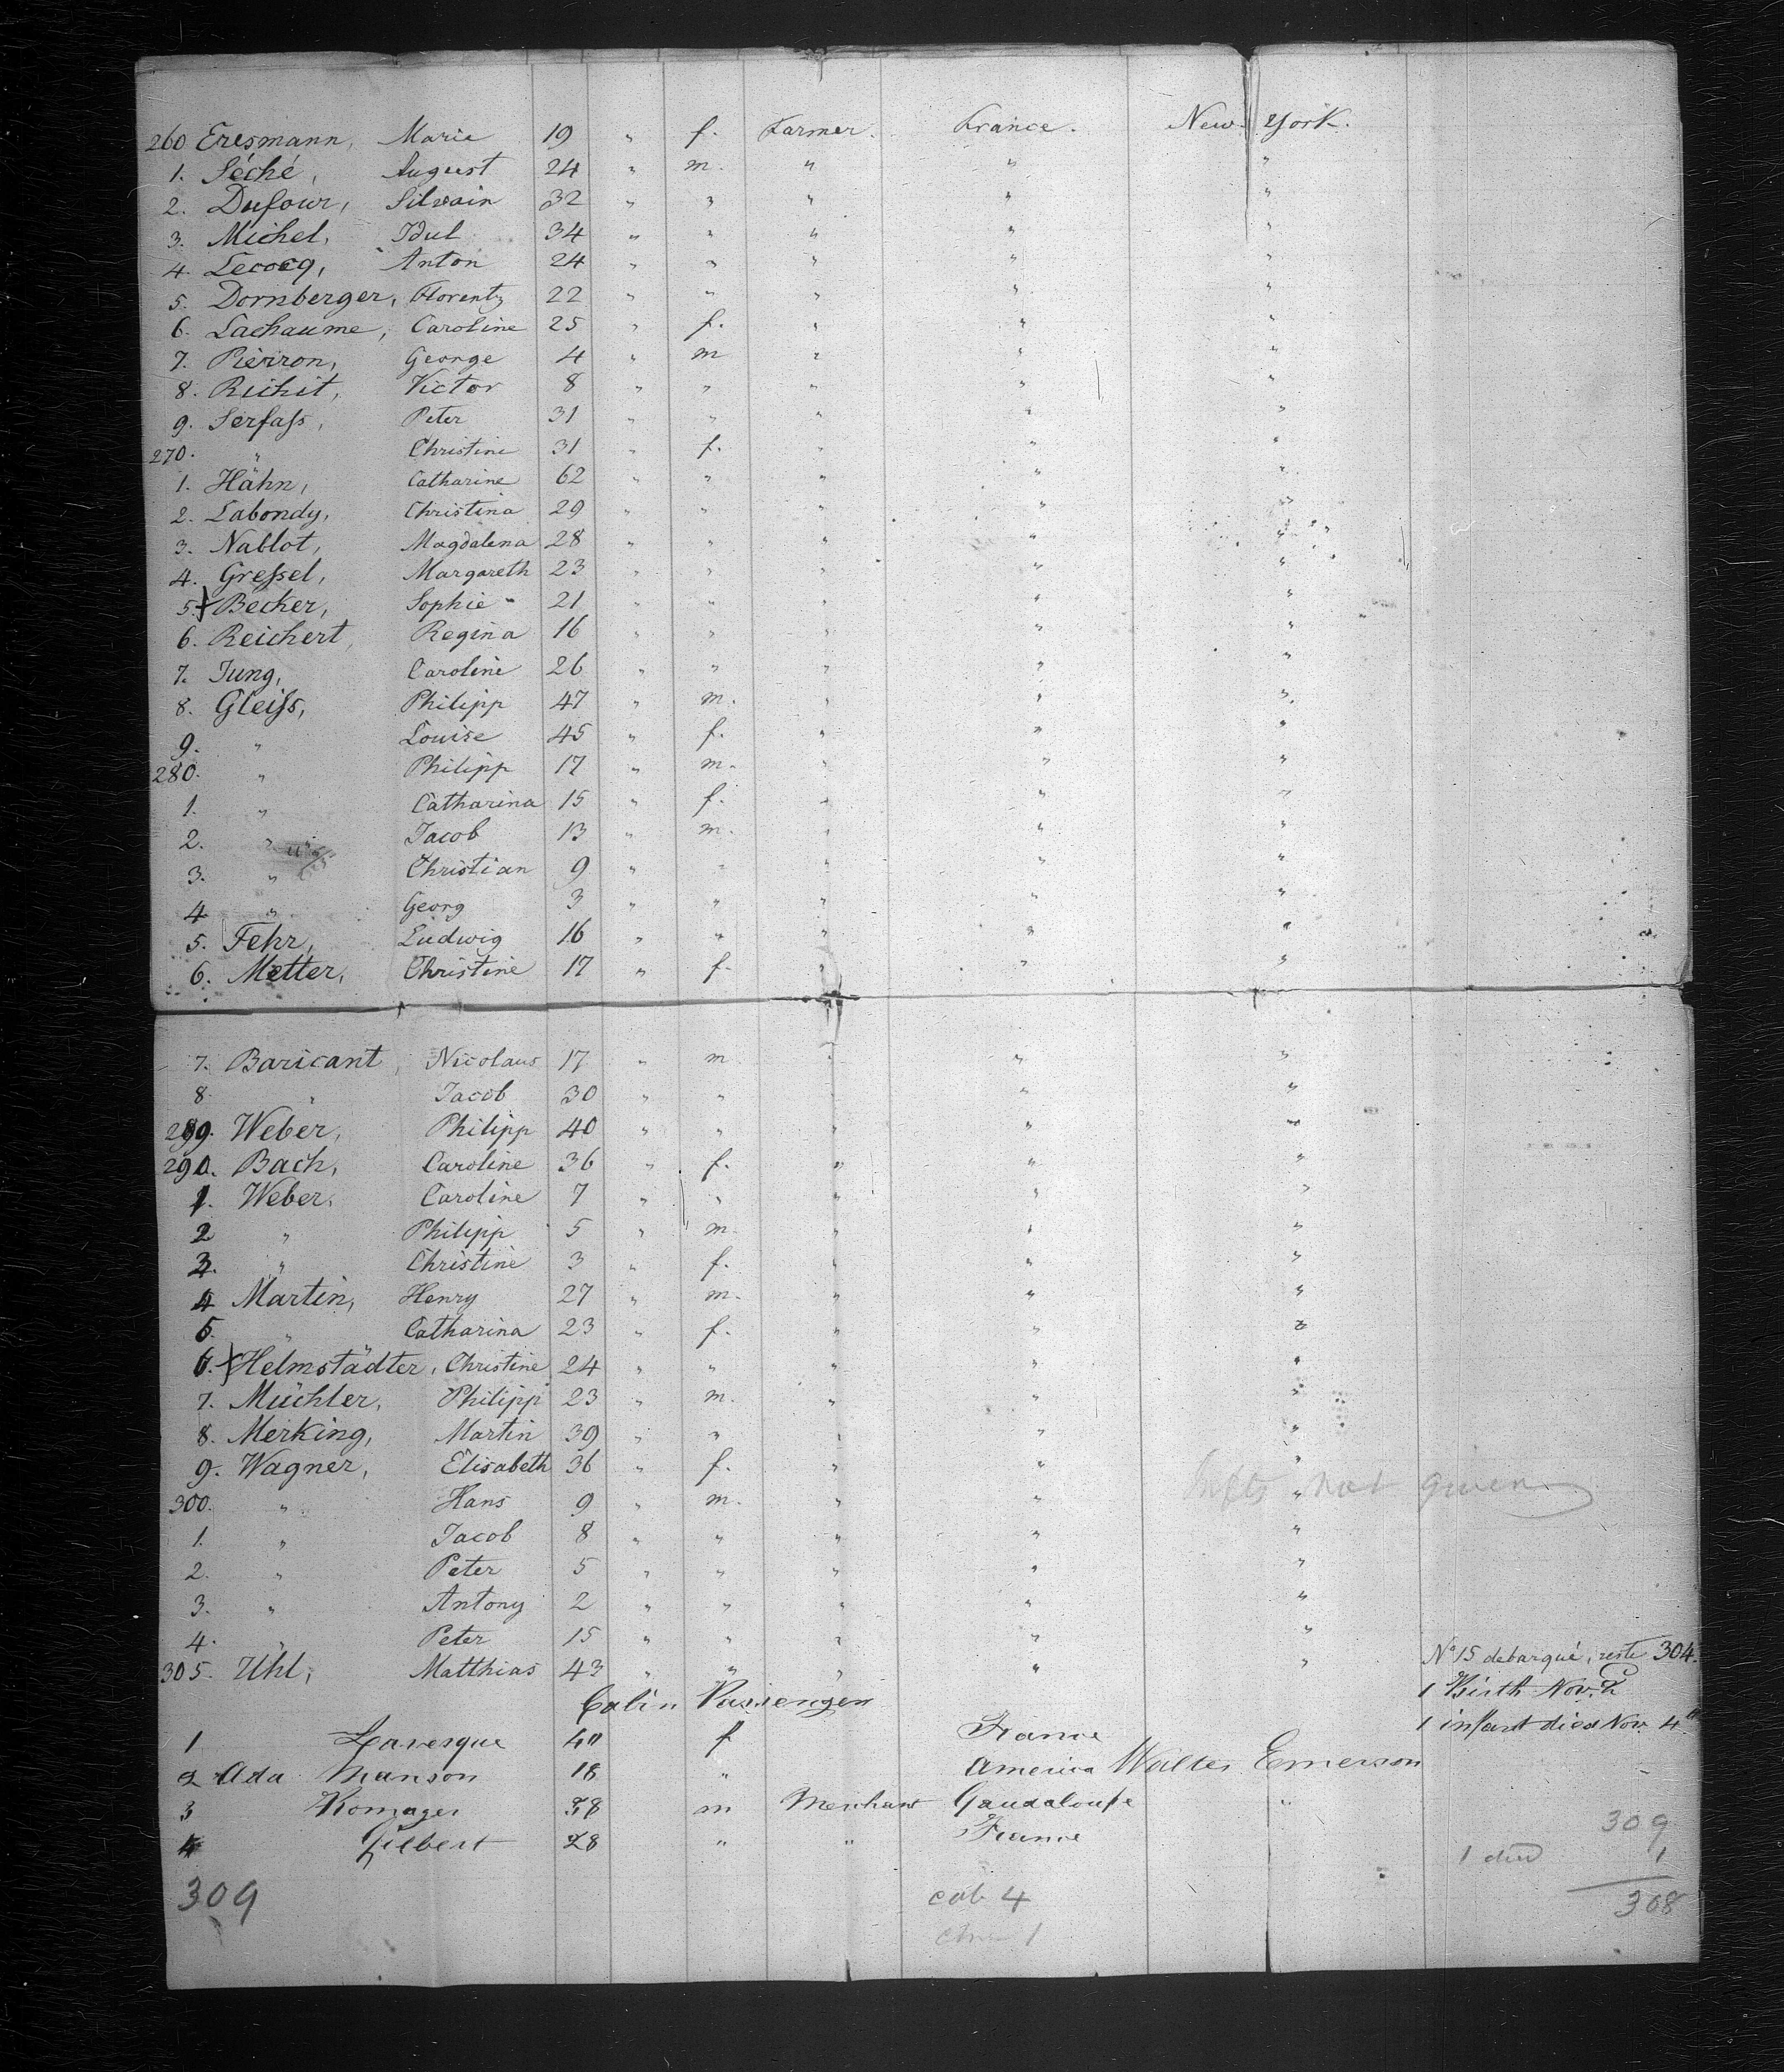 260 Eresmann, Marie 19 " f. Farmer. France. New York.
1. Séché, August 24 " m. " " "
2. Dufour, Silvain 32 " " " " "
3. Michel, Idul 34 " " " " "
4. Lecocq, Anton 24 " " " " "
5. Dornberger, Florentz 22 " " " " "
6. Lachaume, Caroline 25 " f. " " "
7. Pierron, George 4 " m " " "
8. Richit, Victor 8 " " " " "
9. Serfaſs, Peter 31 " " " " "
270. " Christine 31 " f. " " "
1. Hähn, Catharine 62 " " " " "
2. Labondy, Christina 29 " " " " "
3. Nablot, Magdalena 28 " " " " "
4. Greſsel, Margareth 23 " " " " "
5. Becker, Sophie 21 " " " " "
6. Reichert, Regina 16 " " " " "
7. Jung, Caroline 26 " " " " "
8. Gleiſs, Philipp 47 " m. " " "
9. " Louise 45 " f. " " "
280. " Philipp 17 " m. " " "
1. " Catharina 15 " f. " " "
2. " Jacob 13 " m. " " "
3. " Christian 9 " " " " "
4 " Georg 3 " " " " "
5. Fehr, Ludwig 16 " " " " "
6. Metter, Christine 17 " f. " " "
7. Baricant, Nicolaus 17 " m " " "
8. " Jacob 30 " " " " "
289. Weber, Philipp 40 " " " " "
290. Bach, Caroline 36 " f. " " "
1. Weber, Caroline 7 " " " " "
2 " Philipp 5 " m. " " "
3. " Christine 3 " f. " " "
4 Martin, Henry 27 " m. " " "
5. " Catharina 23 " f. " " "
6. Helmstädter, Christine 24 " " " " "
7. Müchler, Philipp 23 " m. " " "
8. Merking, Martin 39 " " " " "
9. Wagner, Elisabeth 36 " f. " " "
300. " Hans 9 " m. " " " not given
1. " Jacob 8 " " " " "
2. " Peter 5 " " " " "
3. " Antony 2 " " " " "
4. " Peter 15 " " " " "
305. Uhl, Matthias 43 " " " " " No 15 debarqué, reste 304.
Cabin Passengers 1 Birth Nov. 2
1 Lavesque 40 f France 1 infant died Nov. 4th
2 Ada Manson 18 " America Walter Emerson
3 Komager 38 m Merchant Gaudaloupe "
4 Gilbert 28 " " France
309
1 died 1
308
309 cab 4
1